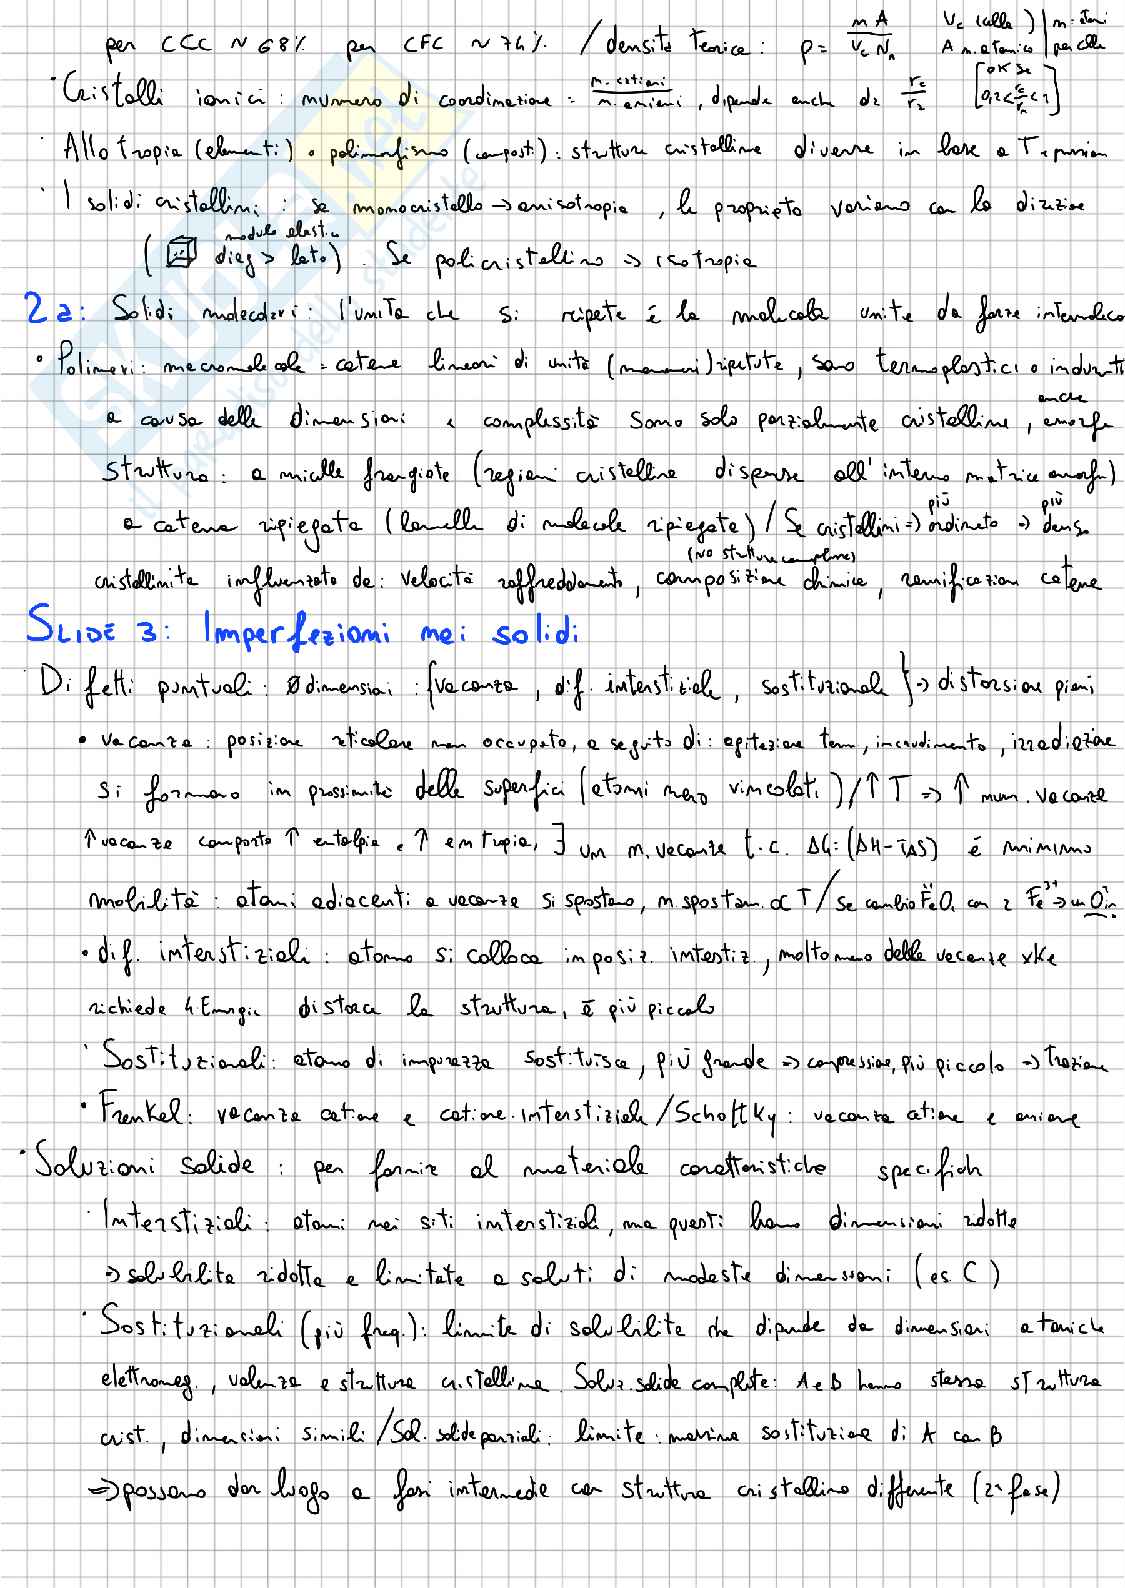 per CCC ~ 68% per CFC ~ 74% / densità teorica: ρ = m A / Vc Nn Vc (cella) A m. atomica | n. atomi per cella
· Cristalli ionici: numero di coordinazione = n. cationi / n. anioni, dipende anche da rc/r2 [OK se 0,2<rc/rn<1]
· Allotropia (elementi) o polimorfismo (composti): strutture cristalline diverse in base a T e pression
· I solidi cristallini: se monocristallo → anisotropia, le proprietà variano con la direzione
( modulo elastic diag > lato). Se policristallino ⇒ isotropia
2a: Solidi molecolari: l'unità che si ripete è la molecola unite da forze intermoleco
• Polimeri: macromolecole = catene lineari di unità (monomeri) ripetute, sono termoplastici o indurenti
a causa delle dimensioni e complessità sono solo parzialmente cristalline, anche amorfe
struttura: a micelle frangiate (regioni cristalline disperse all'interno matrice amorfa)
a catena ripiegata (lamelle di molecole ripiegate) / Se cristallini ⇒ più ordinato ⇒ più denso
cristallinità influenzata da: velocità raffreddamento, composizione chimica (no strutture complesse), ramificazioni catene
SLIDE 3: Imperfezioni nei solidi
· Difetti puntuali: 0 dimensioni: {vacanza, dif. interstiziale, sostituzionale} → distorsione piani
• vacanza: posizione reticolare non occupata, a seguito di: agitazione term, incrudimento, irradiazione
si formano in prossimità delle superfici (atomi meno vincolati) / ↑ T ⇒ ↑ num. vacanze
↑ vacanze comporta ↑ entalpia e ↑ entropia, ∃ un n. vacanze t.c. ΔG: (ΔH-TΔS) è minimo
mobilità: atomi adiacenti a vacanze si spostano, n. spostam. ∝ T / se cambio Fe O, con 2 Fe³⁺ → un O in
• dif. interstiziali: atomo si colloca in posiz. intestiz., molto meno delle vacanze xke
richiede ↑ Energia distorce la struttura, è più piccolo
· Sostituzionali: atomo di impurezza sostituisce, più grande ⇒ compressione, più piccolo → trazione
• Frenkel: vacanza catione e catione interstiziale / Schottky: vacanza catione e anione
· Soluzioni solide: per fornire al materiale caratteristiche specifiche
· Interstiziali: atomi nei siti interstiziali, ma questi hanno dimensioni ridotte
⇒ solubilità ridotta e limitata a soluti di modeste dimensioni (es. C)
· Sostituzionali (più freq.): limite di solubilità che dipende da dimensioni atomiche
elettroneg., valenza e struttura cristallina. Soluz. solide complete: A e B hanno stessa struttura
crist., dimensioni simili / Sol. solide parziali: limite: massima sostituzione di A con B
⇒ possono dar luogo a fasi intermedie con struttura cristallina differente (2ª fase)